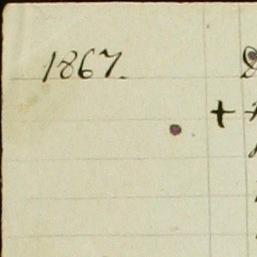 1867.
+